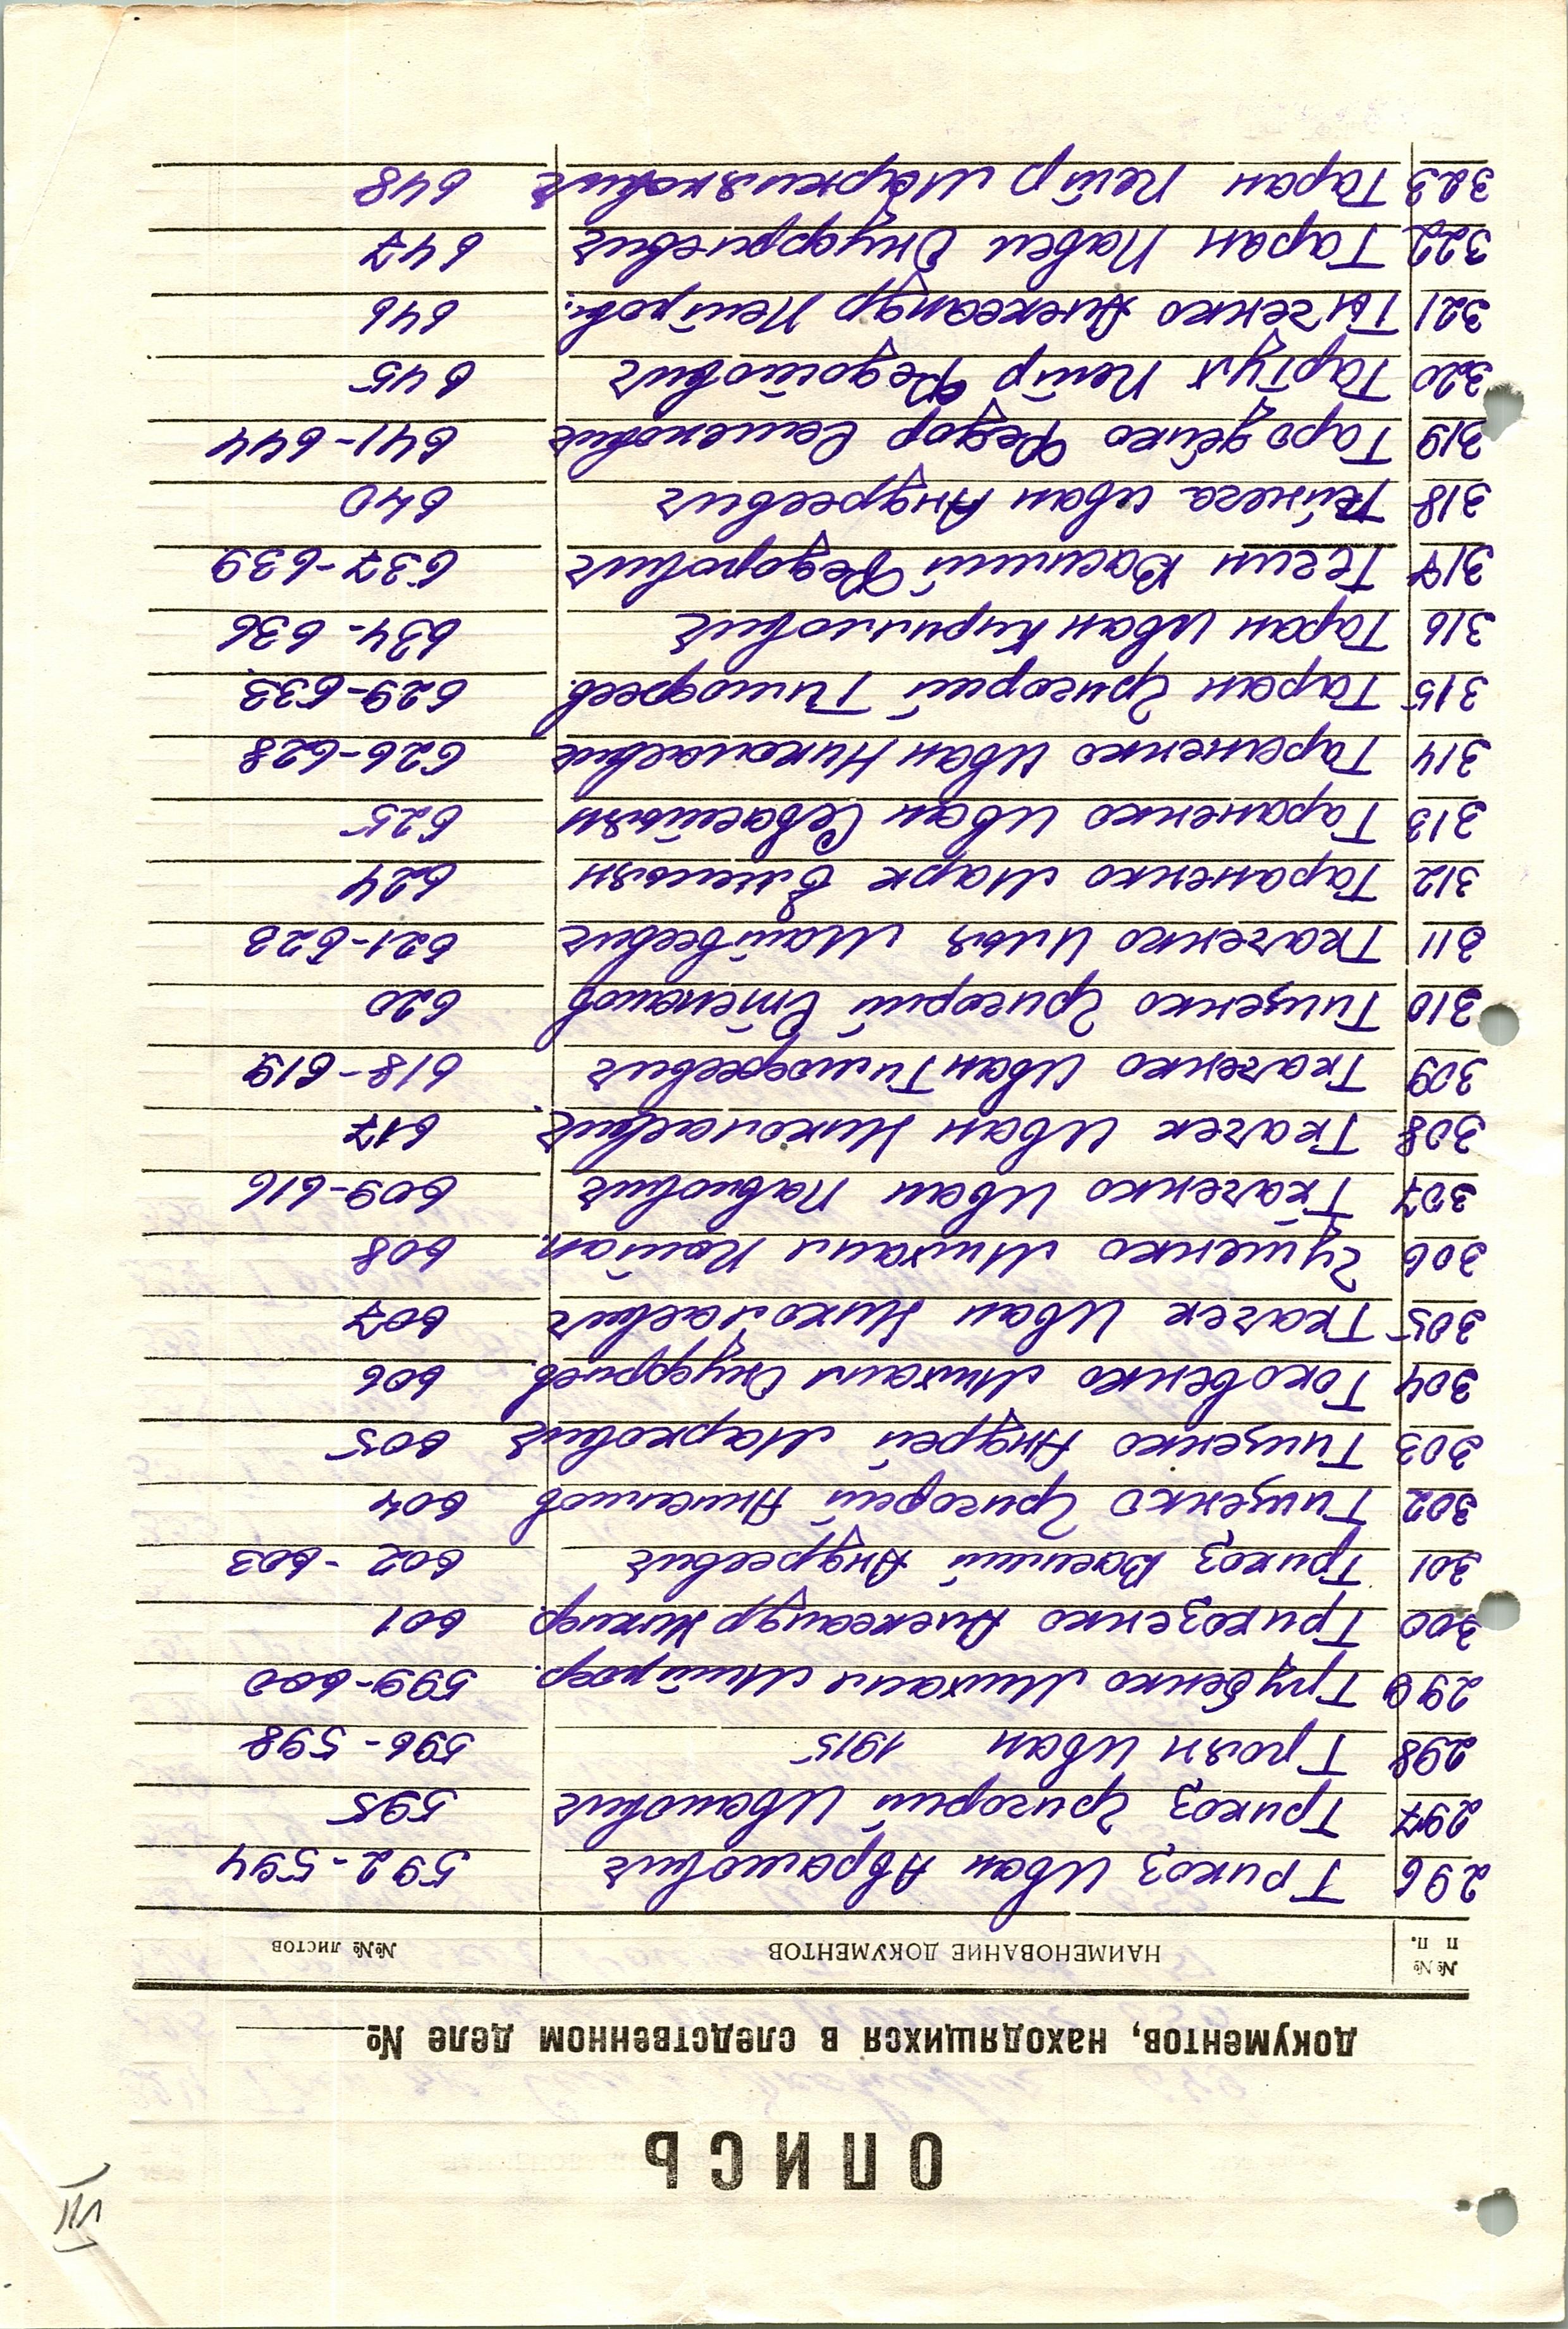 VII
ОПИСЬ
документов, находящихся в следственном деле №
№№ п п. НАИМЕНОВАНИЕ ДОКУМЕНТОВ №№ листов
296 Трикоз Иван Абрамович 592-594
297 Трикоз Григорий Иванович 595
298 Троян Иван 1915 596-598
299 Трубенко Михаил Митроф. 599-600
300 Трикозенко Александр Никиф. 601
301 Трикоз Василий Андреевич 602-603
302 Тищенко Григорий Анисимов 604
303 Тищенко Андрей Маркович 605
304 Токовенко Михаил Онуфриев. 606
305 Ткачек Иван Николаевич 607
306 Гущенко Михаил Потап. 608
307 Ткаченко Иван Павлович 609-616
308 Ткачек Иван Николаевич 617
309 Ткаченко Иван Тимофеевич 618-619
310 Тищенко Григорий Степанов 620
311 Ткаченко Илья Матвеевич 621-623
312 Тараненко Марк Емельян 624
313 Тараненко Иван Севастьян 625
314 Тараненко Иван Николаевич 626-628
315 Таран Григорий Тимофеев. 629-633
316 Таран Иван Кириллович 634-636
317 Тесин Василий Федорович 637-639
318 Иван Андреевич 640
319 Федор Семенович 641-644
320 Петр 645
321 Александр Петров. 646
322 Таран Павел Онуфриевич 647
323 Таран Петр 648